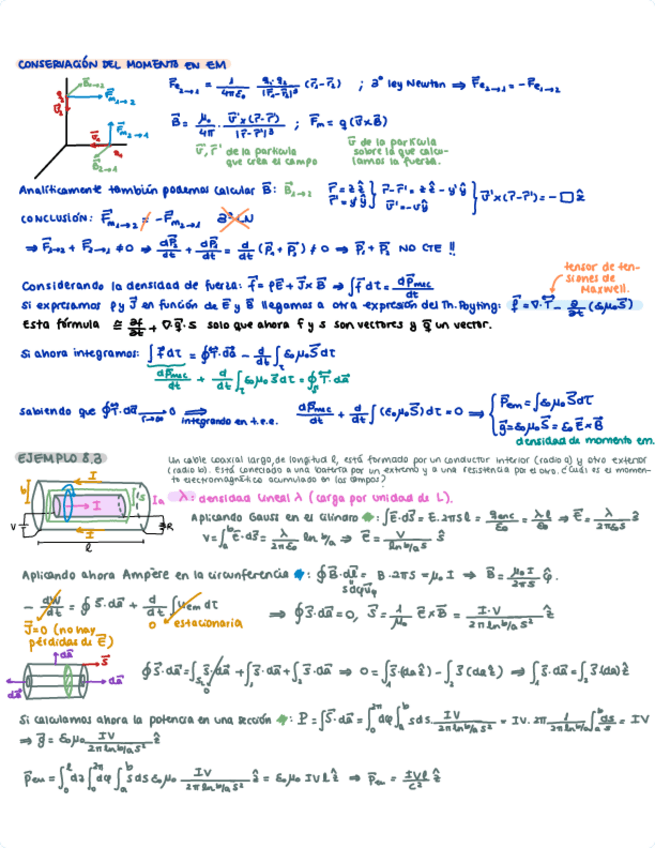 CONSERVACIÓN DEL MOMENTO EN EM
F⃗e₂→₁ = 1/4πε₀ q₁·q₂/|r⃗₁-r⃗₂|³ (r⃗₁-r⃗₂) ; 3ª ley Newton ⇒ F⃗e₂→₁ = -F⃗e₁→₂
B⃗ = μ₀/4π · v⃗'×(r⃗-r⃗')/|r⃗-r⃗'|³ ; F⃗m = q(v⃗×B⃗)
v⃗', r⃗' de la partícula que crea el campo
v⃗ de la partícula sobre la que calculamos la fuerza.
Analíticamente también podemos calcular B⃗: B⃗₁→₂
CONCLUSIÓN: F⃗m₁→₂ = -F⃗m₂→₁ 3ª LN
⇒ F⃗₁→₂ + F⃗₂→₁ ≠ 0 ⇒ dP⃗₁/dt + dP⃗₂/dt = d/dt (P⃗₁+P⃗₂) ≠ 0 ⇒ P⃗₁+P⃗₂ NO CTE !!
tensor de tensiones de Maxwell.
Considerando la densidad de fuerza: f⃗ = ρE⃗ + J⃗×B⃗ ⇒ ∫f⃗ dτ = dp⃗mec/dt
Si expresamos ρ y J⃗ en función de E⃗ y B⃗ llegamos a otra expresión del Th. Poyting: f⃗ = ∇·T⃗ - ∂/∂t (ε₀μ₀S⃗)
Esta fórmula solo que ahora f y s son vectores y un vector.
Si ahora integramos: ∫f⃗ dτ = ∮T⃗·da⃗ - d/dt ∫ ε₀μ₀S⃗ dτ
dp⃗mec/dt + d/dt ∫ ε₀μ₀S⃗ dτ = ∮T⃗·da⃗
Sabiendo que ∮T⃗·da⃗ → 0 ⇒ integrando en t.e.e. dp⃗mec/dt + d/dt ∫(ε₀μ₀S⃗)dτ = 0 ⇒ { p⃗em = ∫ε₀μ₀S⃗dτ
g⃗ = ε₀μ₀S⃗ = ε₀E⃗×B⃗
densidad de momento em.
EJEMPLO 8.3
Un cable coaxial largo, de longitud l, está formado por un conductor interior (radio a) y otro exterior
(radio b). Está conectado a una batería por un extremo y a una resistencia por el otro. ¿Cuál es el momen-
to electromagnético acumulado en los campos?
λ: densidad lineal λ (carga por unidad de L).
Aplicando Gauss en el cilindro : ∫E⃗·dS⃗ = E·2πsl = qenc/ε₀ = λl/ε₀ ⇒ E⃗ = λ/2πε₀s ŝ
V = ∫ₐᵇ E⃗·ds⃗ = λ/2πε₀ ln b/a ⇒ E⃗ = V/ln b/a s ŝ
Aplicando ahora Ampère en la circunferencia : ∮B⃗·dl⃗ = B·2πs = μ₀I ⇒ B⃗ = μ₀I/2πs φ̂.
- dW/dt = ∮S⃗·da⃗ + d/dt ∫uem dτ ⇒ ∮S⃗·da⃗ = 0, S⃗ = 1/μ₀ E⃗×B⃗ = I·V/2π ln b/a s² ẑ
J⃗=0 (no hay pérdidas de E⃗)
0 estacionaria
∮S⃗·da⃗ = ∫S⃗·da⃗ + ∫S⃗·da⃗ + ∫S⃗·da⃗ ⇒ 0 = ∫S⃗(da ẑ) - ∫S⃗(da ẑ) ⇒ ∫S⃗·da⃗ = ∫S⃗(da) ẑ
Si calculamos ahora la potencia en una sección : P = ∫S⃗·da⃗ = ∫₀²π dφ ∫ₐᵇ s ds · IV/2π ln b/a s² = IV·2π 1/2π ln b/a ∫ₐᵇ ds/s = IV
⇒ g⃗ = ε₀μ₀ IV/2π ln b/a s² ẑ
p⃗em = ∫₀ˡ dz ∫₀²π dφ ∫ₐᵇ s ds ε₀μ₀ IV/2π ln b/a s² ẑ = ε₀μ₀ IVl ẑ ⇒ p⃗em = IVl/c² ẑ